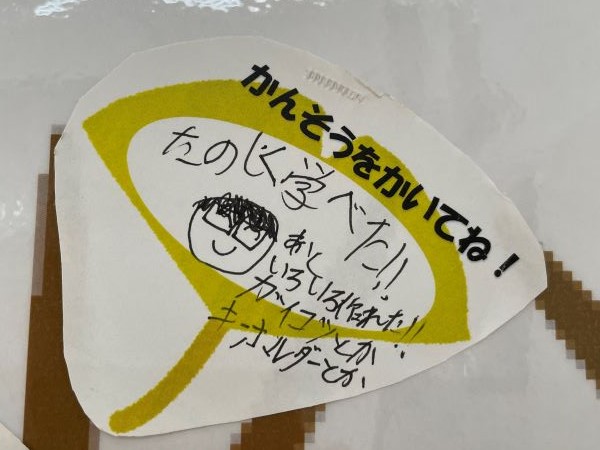 かんそうをかいてね!
たのしく学べた!!
あと
いろいろ作れた!!
ガイコツとか
キーホルダーとか